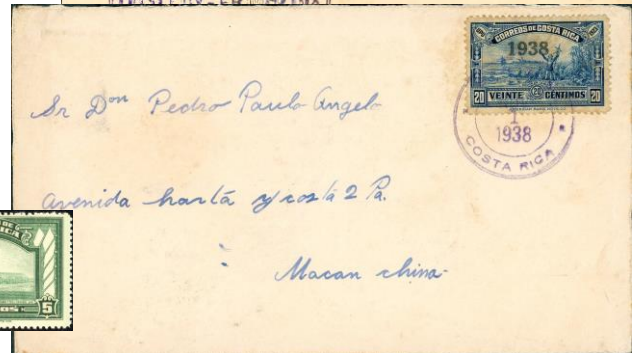 CORREOS DE COSTA RICA
1938
20 VEINTE CENTIMOS 20
1
1938
COSTA RICA
Sr Don Pedro Paulo Angelo
avenida harta y costa 2 Pa.
Macan china
5